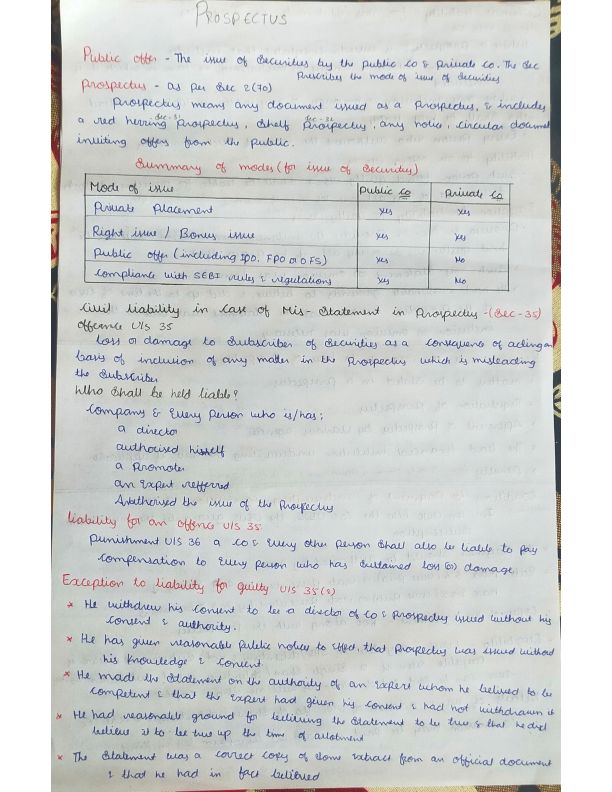 PROSPECTUS
Public offer - The issue of Securities by the public co & Private co. The Sec
Prescribes the mode of issue of Securities
Prospectus - as per Sec 2(70)
Prospectus means any document issued as a Prospectus, & includes
Sec-31 Sec-32
a red herring Prospectus, Shelf Prospectus, any notice, circular document
inviting offers from the Public.
Summary of modes (for issue of Securities)
Mode of issue Public co Private co
Private Placement Yes Yes
Right issue / Bonus issue Yes Yes
Public offer (including IPO, FPO or OFS) Yes No
Compliance with SEBI rules & regulations Yes No
Civil liability in case of Mis-Statement in Prospectus - (Sec-35)
offence U/S 35
Loss or damage to Subscriber of Securities as a consequence of acting on
basis of inclusion of any matter in the Prospectus which is misleading
the Subscriber
Who Shall be held liable?
Company & Every person who is/has:
a director
authorised himself
a Promoter
an Expert refferred
Authorised the issue of the Prospectus
Liability for an offence U/S 35
Punishment U/S 36 a co & Every other person Shall also be liable to pay
compensation to Every person who has Sustained loss (or) damage
Exception to liability for guilty U/S 35(2)
* He withdrew his consent to be a director of co & Prospectus issued without his
consent & authority.
* He has given reasonable Public notice, to effect, that Prospectus was issued without
his Knowledge & Consent
* He made the Statement on the authority of an Expert whom he believed to be
competent & that the Expert had given his consent & had not withdrawn it
* He had reasonable ground for believing the Statement to be true & that he did
believe it to be true up the time of allotment
* The Statement was a correct copy of Some Extract from an official document
& that he had in fact believed